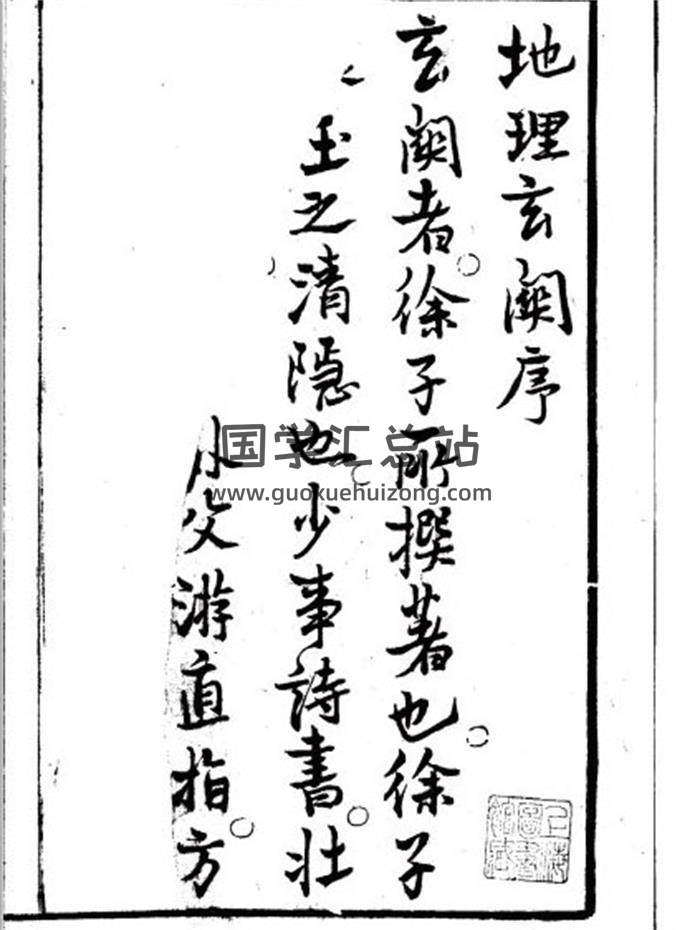 地理玄闕序
玄闕者徐子所撰著也徐子
玉之清隱也少事詩書壯
父游直指方
国学汇总站
www.guoxuehuizong.com
上海圖書館藏